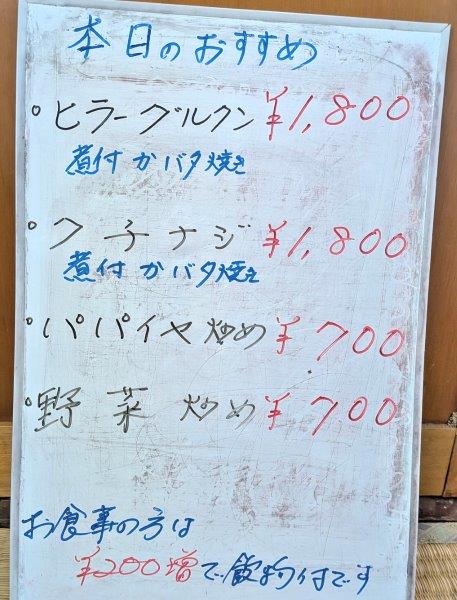 本日のおすすめ
○ヒラーグルクン ¥1,800
煮付かバタ焼き
○クチナジ ¥1,800
煮付かバタ焼き
○パパイヤ炒め ¥700
○野菜炒め ¥700
お食事の方は
¥200増で飲物付です